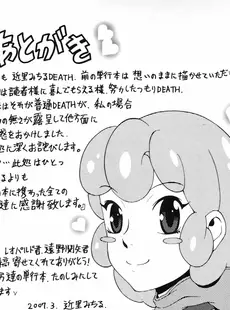 あとがき
も 近里みちるDEATH. 前の単行本は 想いのままに描かせていただい
は読者様に喜んでもらえる様、努力したつもりDEATH.
はそれが普通DEATHが、私の場合
の無さが露呈して他方面に
惑をおかけしました。
処に深くお詫びします。
…此処はひとつ
るよりも
本に携った全ての
達に感謝 致します。
レオパルド若 遠野関矢君
稿寄せてくれてありがとう!
達の単行本、たのしみにして
ます。
2009.3. 近里みちる.